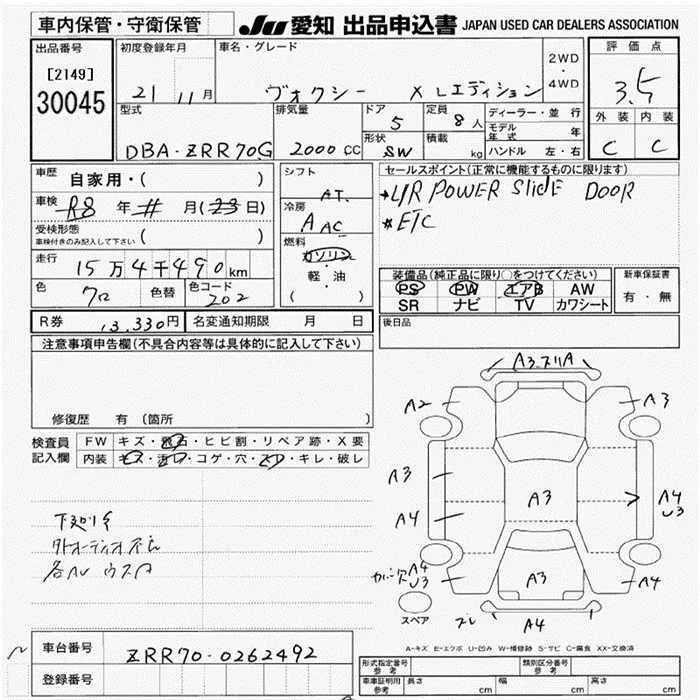 車内保管・守衛保管
JU 愛知 出品申込書 JAPAN USED CAR DEALERS ASSOCIATION
出品番号
[2149]
30045
初度登録年月
21 11月
車名・グレード
ヴォクシー X Lエディション
2WD
・
4WD
評価点
3.5
外装 内装
C C
型式
DBA-ZRR70G
排気量
2000cc
ドア
5
形状
SW
定員
8人
積載
kg
ディーラー・並行
モデル年式 年
ハンドル 左・右
車歴 自家用・( )
車検 R8年 月(23日)
受検形態
車検付きのみ記入して下さい ( )
走行 15万4千490km
色 クロ 色替 色コード 202
シフト
AT.
冷房
AAC
燃料
ガソリン
軽・油
( )
セールスポイント(正常に機能するものに限ります)
L/R POWER SlidE DOOR
* ETC
装備品(純正品に限り○をつけてください)
PS PW エアB AW
SR ナビ TV カワシート
新車保証書
有・無
R券 13,330円 名変通知期限 月 日
後日品
注意事項申告欄(不具合内容等は具体的に記入して下さい)
修復歴 有 (箇所 )
検査員記入欄
FW キズ・飛石・ヒビ割・リペア跡・X要
内装 キズ・汚レ・コゲ・穴・スレ・キレ・破レ
下廻りキ
外オーディオ不良
各AV ウスク
A3.スリA
A2 A3
A3
A4
A3
A4
U3
A4
U3
A3
A4
スレ A4
スペア
A-キズ E-エクボ U-凹み W-補修跡 S-サビ C-腐食 XX-交換済
車台番号 ZRR70-0262492
登録番号
形式指定番号
参考
類別区分番号
参考
車庫証明用
参考
長さ cm 幅 cm 高さ cm